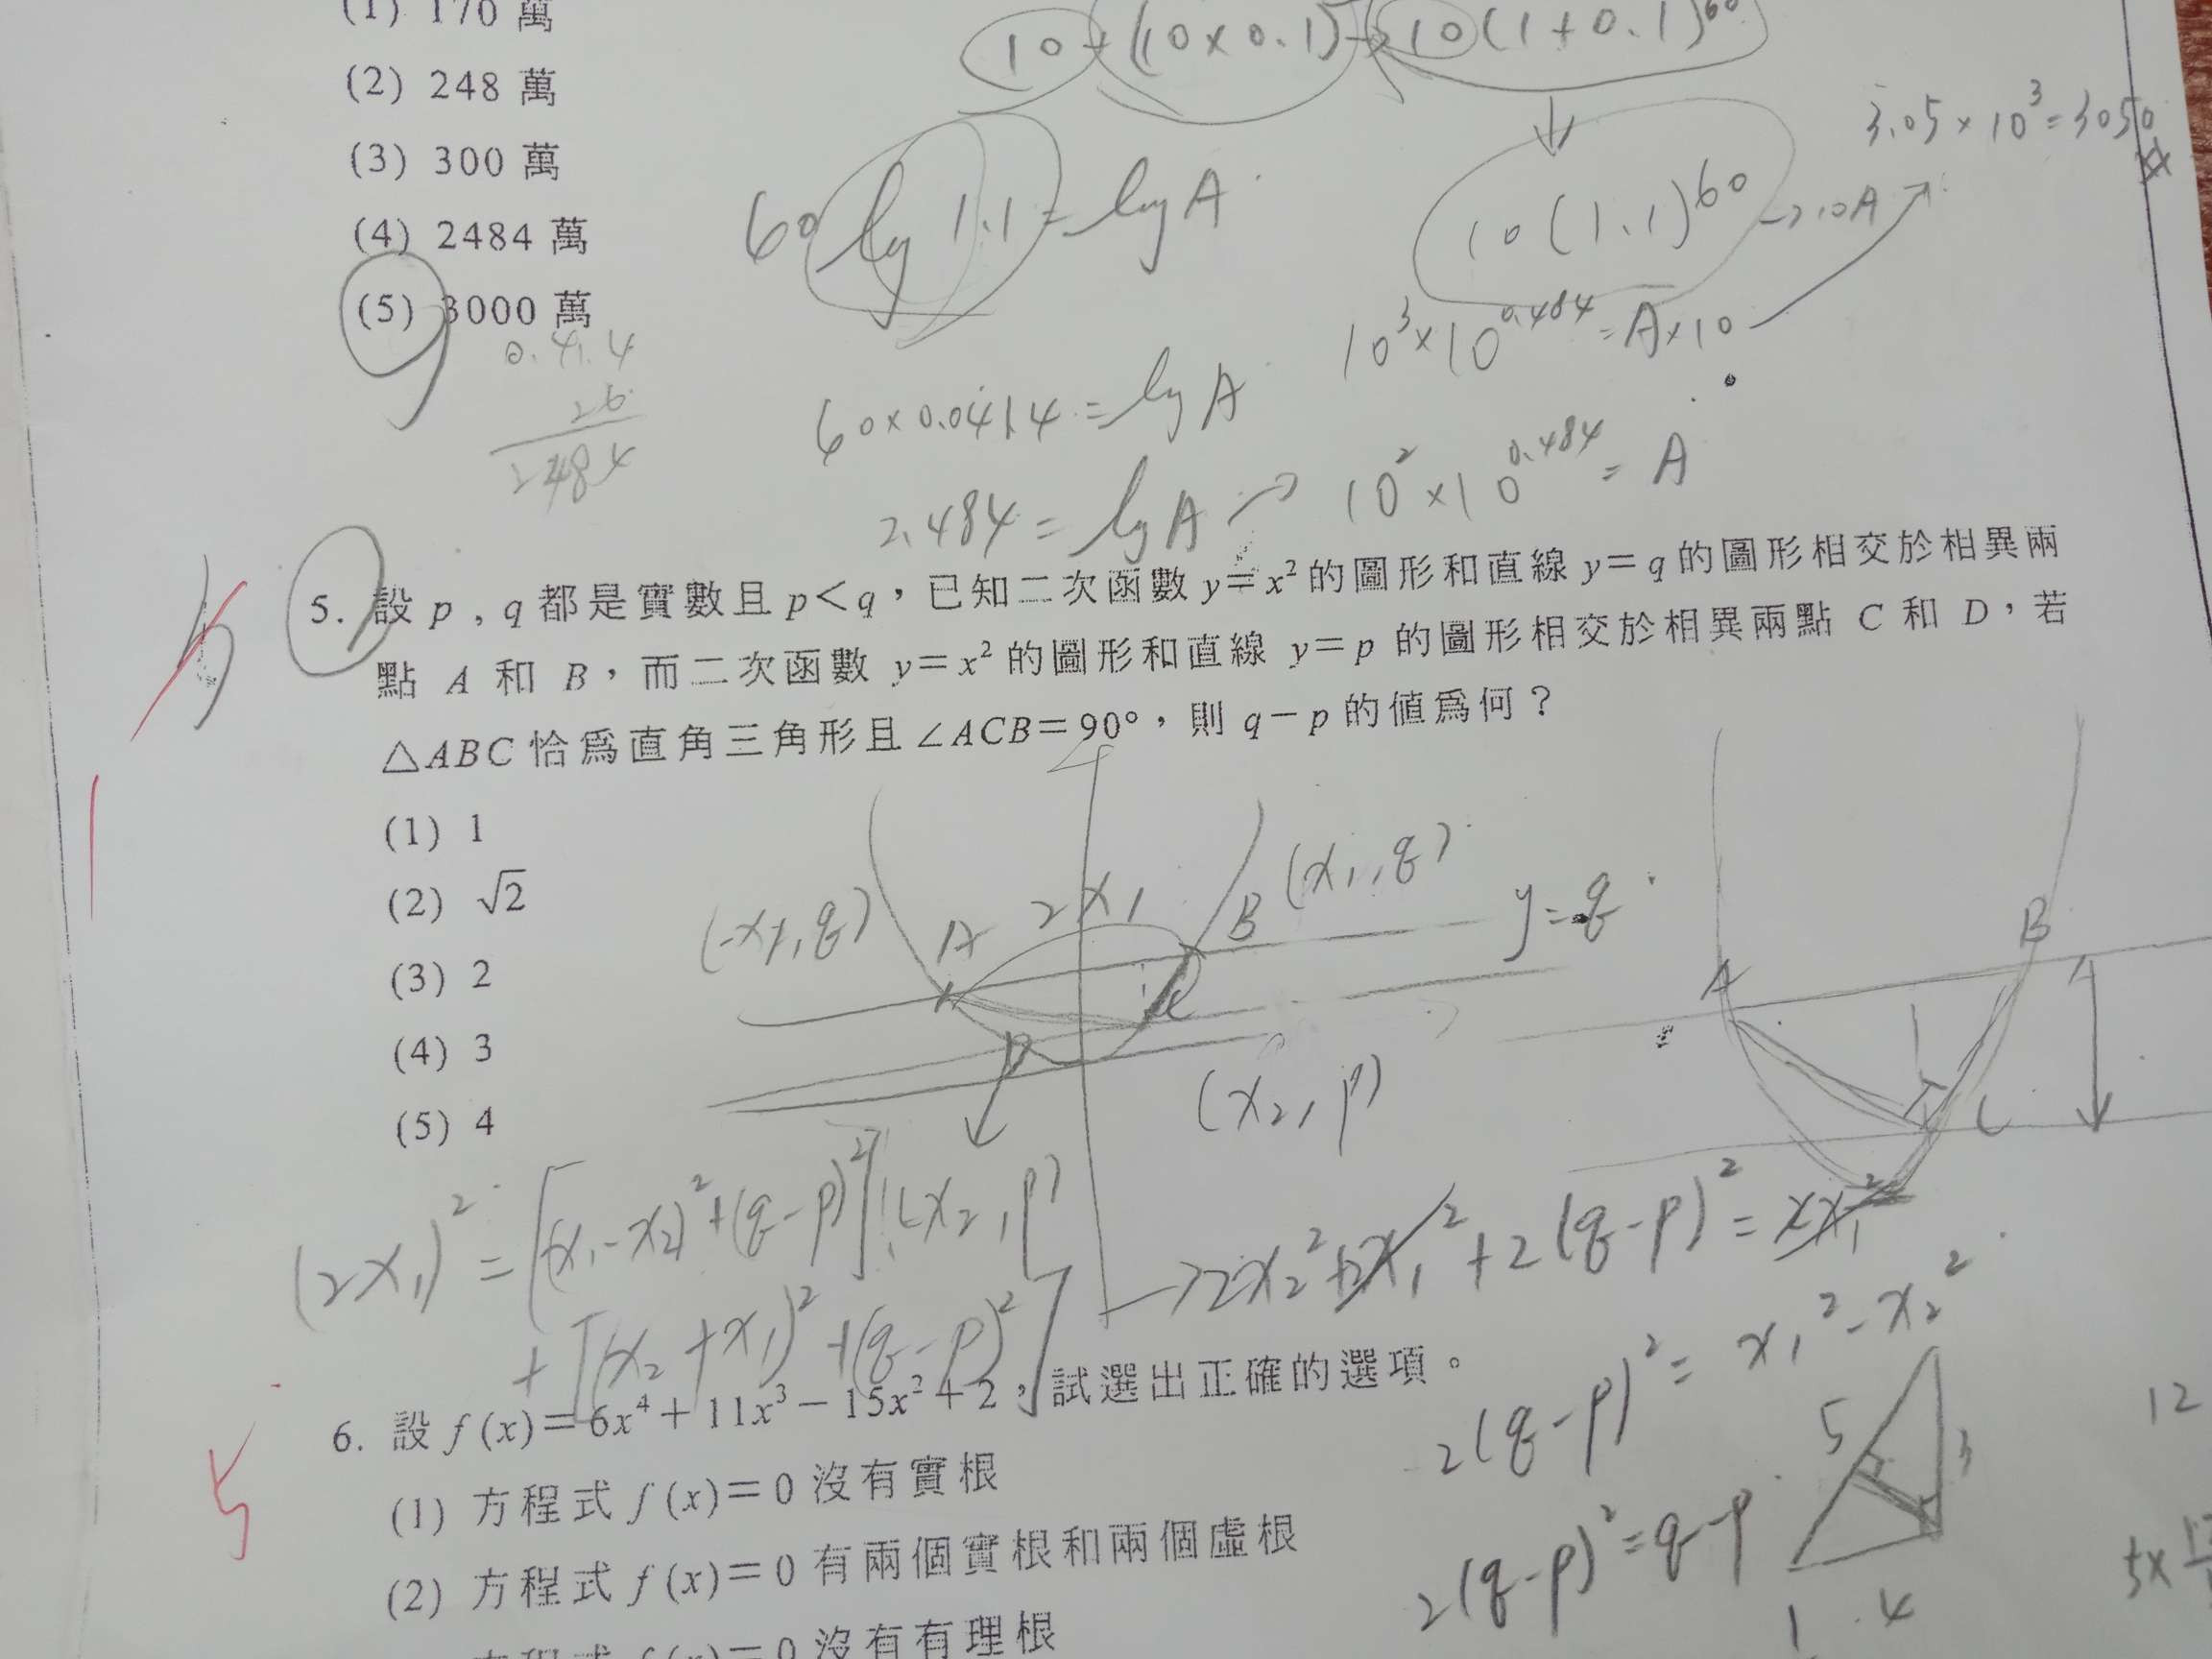 (1) 170 萬
10 + (10×0.1) → 10(1+0.1)^60
(2) 248 萬
3.05×10³=3050
(3) 300 萬
60 log 1.1 = log A
10(1.1)^60 → 10A
(4) 2484 萬
(5) 3000 萬
10³×10^0.484 = A×10
60×0.0414 = log A
2484
2.484 = log A → 10²×10^0.484 = A
5. 設 p,q 都是實數且 p<q,已知二次函數 y=x² 的圖形和直線 y=q 的圖形相交於相異兩
點 A 和 B,而二次函數 y=x² 的圖形和直線 y=p 的圖形相交於相異兩點 C 和 D,若
△ABC 恰為直角三角形且∠ACB=90°,則 q-p 的值為何?
(1) 1
(2) √2
(3) 2
(4) 3
(5) 4
(-x₁,q) A 2x₁ B (x₁,q) y=q
C
D
(x₂,p)
A B C
(2x₁)² = [(x₁-x₂)²+(q-p)²] (-x₂,p)
+ [(x₂+x₁)²+(q-p)²]
→ 2x₂²+2x₁²+2(q-p)² =
2(q-p)² = x₁²-x₂²
2(q-p)² = q-p
5 3 4
12
6. 設 f(x)=6x⁴+11x³-15x²+2,試選出正確的選項。
(1) 方程式 f(x)=0 沒有實根
(2) 方程式 f(x)=0 有兩個實根和兩個虛根
方程式 f(x)=0 沒有有理根